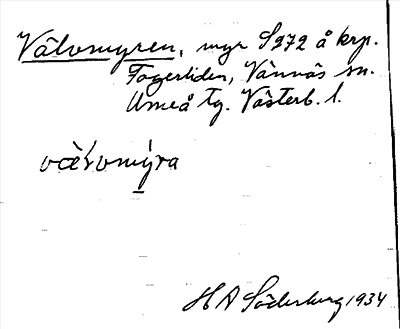 Välvomyren, myr S 272 å krp.
Fagerliden, Vännäs sn.
Umeå tg. Västerb. l.
H A Söderberg 1934